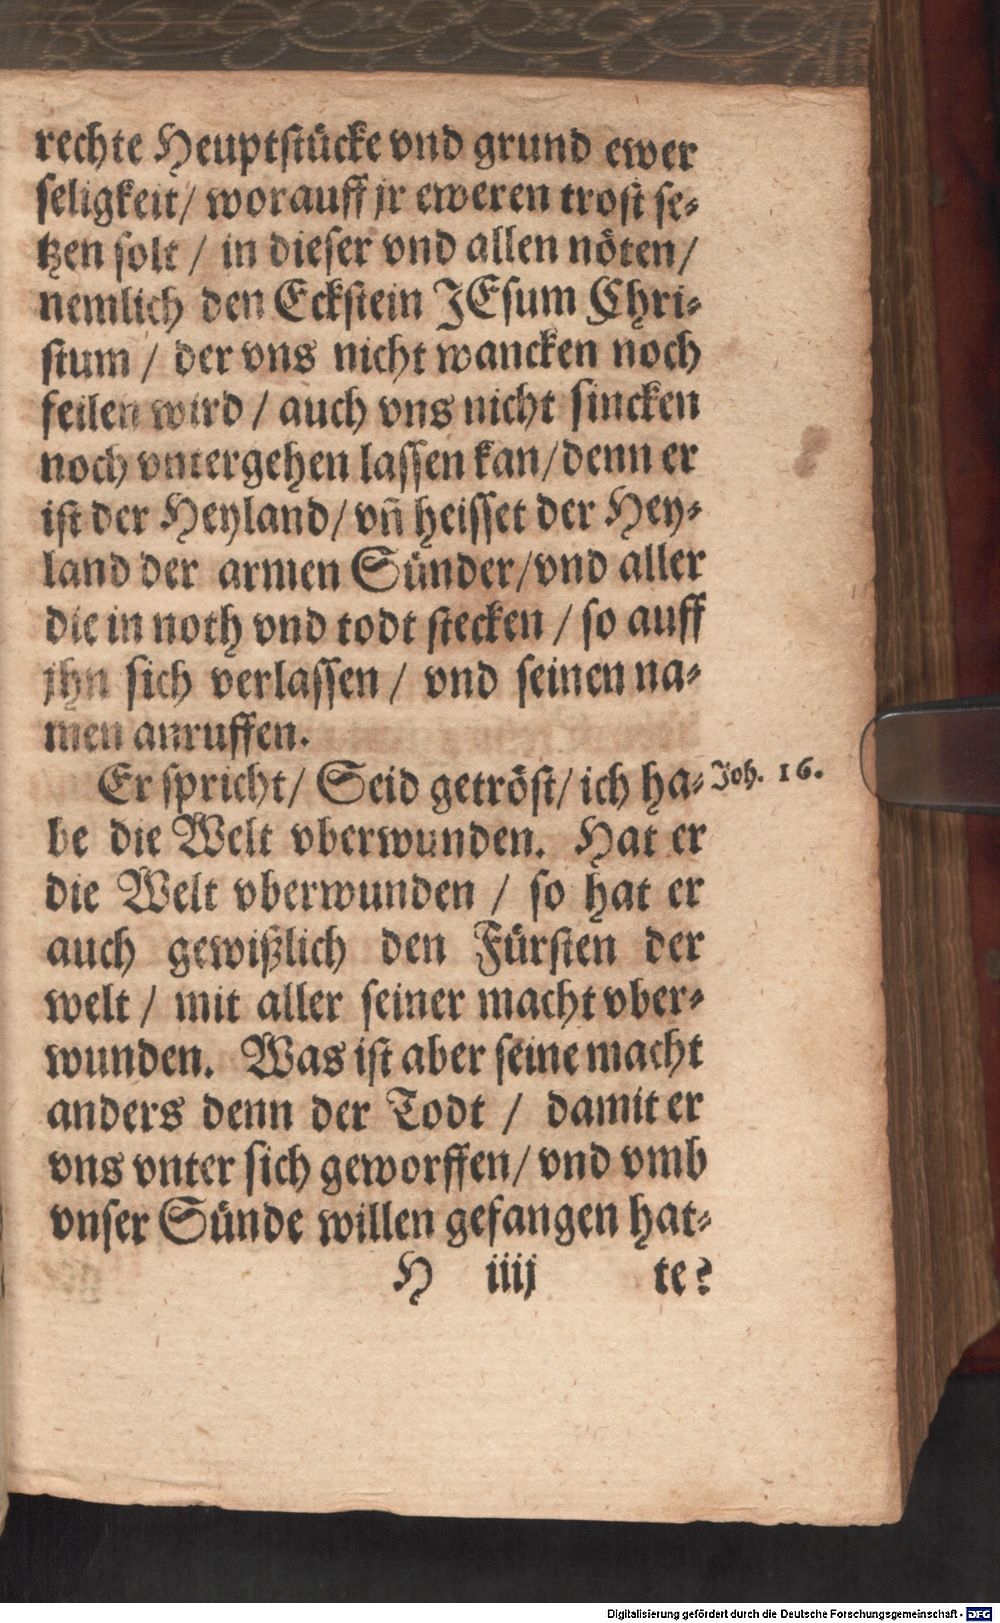 rechte Heuptstücke vnd grund ewer
seligkeit/ worauff jr eweren trost se⸗
tzen solt / in dieser vnd allen nöten/
nemlich den Eckstein JEsum Chri⸗
stum / der vns nicht wancken noch
feilen wird / auch vns nicht sincken
noch vntergehen lassen kan/denn er
ist der Heyland/ vn̄ heisset der Hey⸗
land der armen Sünder/vnd aller
die in noth vnd todt stecken / so auff
jhn sich verlassen / vnd seinen na⸗
men anruffen.
Er spricht/ Seid getröst/ ich ha⸗ Joh. 16.
be die Welt vberwunden. Hat er
die Welt vberwunden / so hat er
auch gewißlich den Fürsten der
welt / mit aller seiner macht vber⸗
wunden. Was ist aber seine macht
anders denn der Todt / damit er
vns vnter sich geworffen/ vnd vmb
vnser Sünde willen gefangen hat⸗
H iiij te?
Digitalisierung gefördert durch die Deutsche Forschungsgemeinschaft - DFG